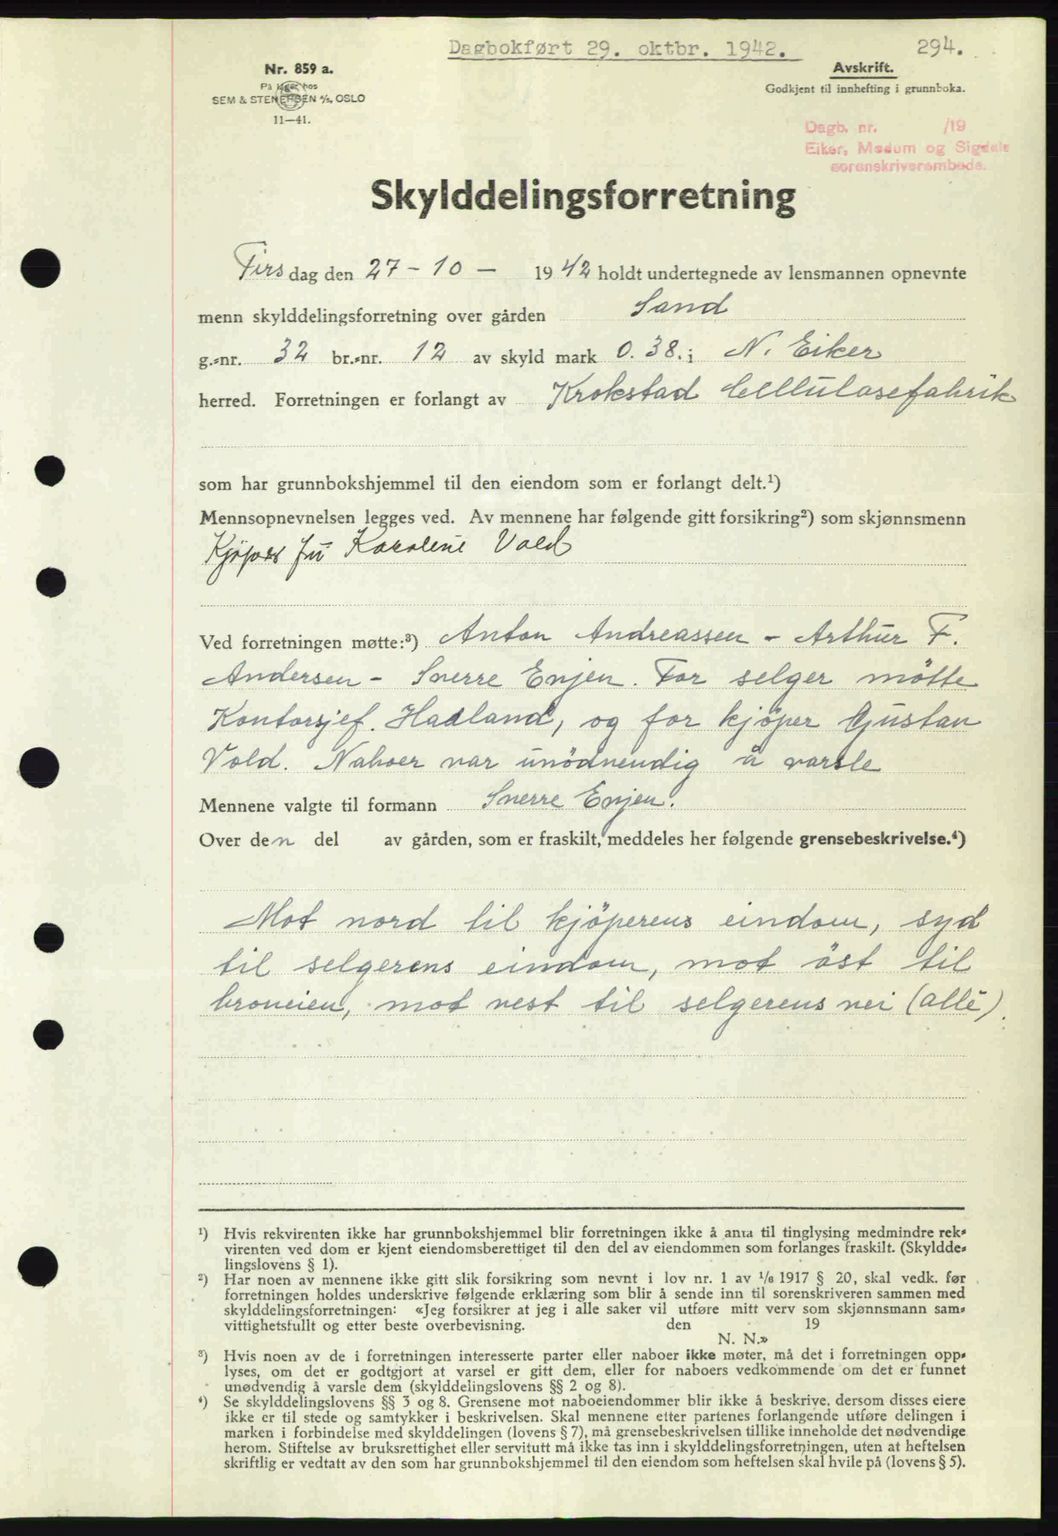 Dagbokført 29. oktbr. 1942. 294.
Nr. 859 a.
På lager hos
SEM & STENERSEN A/S, OSLO
11—41.
Avskrift.
Godkjent til innhefting i grunnboka.
Dagb. nr. /19
Eiker, Modum og Sigdale
sorenskriverembede.
Skylddelingsforretning
Tirs dag den 27 - 10 - 1942 holdt undertegnede av lensmannen opnevnte
menn skylddelingsforretning over gården Sand
g.-nr. 32 br.-nr. 12 av skyld mark 0.38. i N. Eiker
herred. Forretningen er forlangt av Krokstad Cellulosefabrik
som har grunnbokshjemmel til den eiendom som er forlangt delt.¹)
Mennsopnevnelsen legges ved. Av mennene har følgende gitt forsikring²) som skjønnsmenn
Kjøper fru Karoline Vold
Ved forretningen møtte:³) Anton Andreassen - Arthur F.
Andersen - Sverre Enjen. For selger møtte
Kontorsjef. Hadland, og for kjøper Gustav
Vold. Naboer var unødvendig å varsle
Mennene valgte til formann Sverre Enjen.
Over den del av gården, som er fraskilt, meddeles her følgende grensebeskrivelse.⁴)
Mot nord til kjøperens eindom, syd
til selgerens eindom, mot øst til
broveien, mot vest til selgerens vei (allé).
¹) Hvis rekvirenten ikke har grunnbokshjemmel blir forretningen ikke å anta til tinglysing medmindre rek-
virenten ved dom er kjent eiendomsberettiget til den del av eiendommen som forlanges fraskilt. (Skyldde-
lingslovens § 1).
²) Har noen av mennene ikke gitt slik forsikring som nevnt i lov nr. 1 av 1/6 1917 § 20, skal vedk. før
forretningen holdes underskrive følgende erklæring som blir å sende inn til sorenskriveren sammen med
skylddelingsforretningen: «Jeg forsikrer at jeg i alle saker vil utføre mitt verv som skjønnsmann sam-
vittighetsfullt og etter beste overbevisning. den 19
N. N.»
³) Hvis noen av de i forretningen interesserte parter eller naboer ikke møter, må det i forretningen opp-
lyses, om det er godtgjort at varsel er gitt dem, eller for naboers vedkommende om det er funnet
unødvendig å varsle dem (skylddelingslovens §§ 2 og 8).
⁴) Se skylddelingslovens §§ 3 og 8. Grensene mot naboeiendommer blir ikke å beskrive, dersom disses eiere
ikke er til stede og samtykker i beskrivelsen. Skal mennene etter partenes forlangende utføre delingen i
marken i forbindelse med skylddelingen (lovens § 7), må grensebeskrivelsen tillike inneholde det nødvendige
herom. Stiftelse av bruksrettighet eller servitutt må ikke tas inn i skylddelingsforretningen, uten at heftelsen
skriftlig er vedtatt av den som har grunnbokshjemmel til den eiendom som heftelsen skal hvile på (lovens § 5).